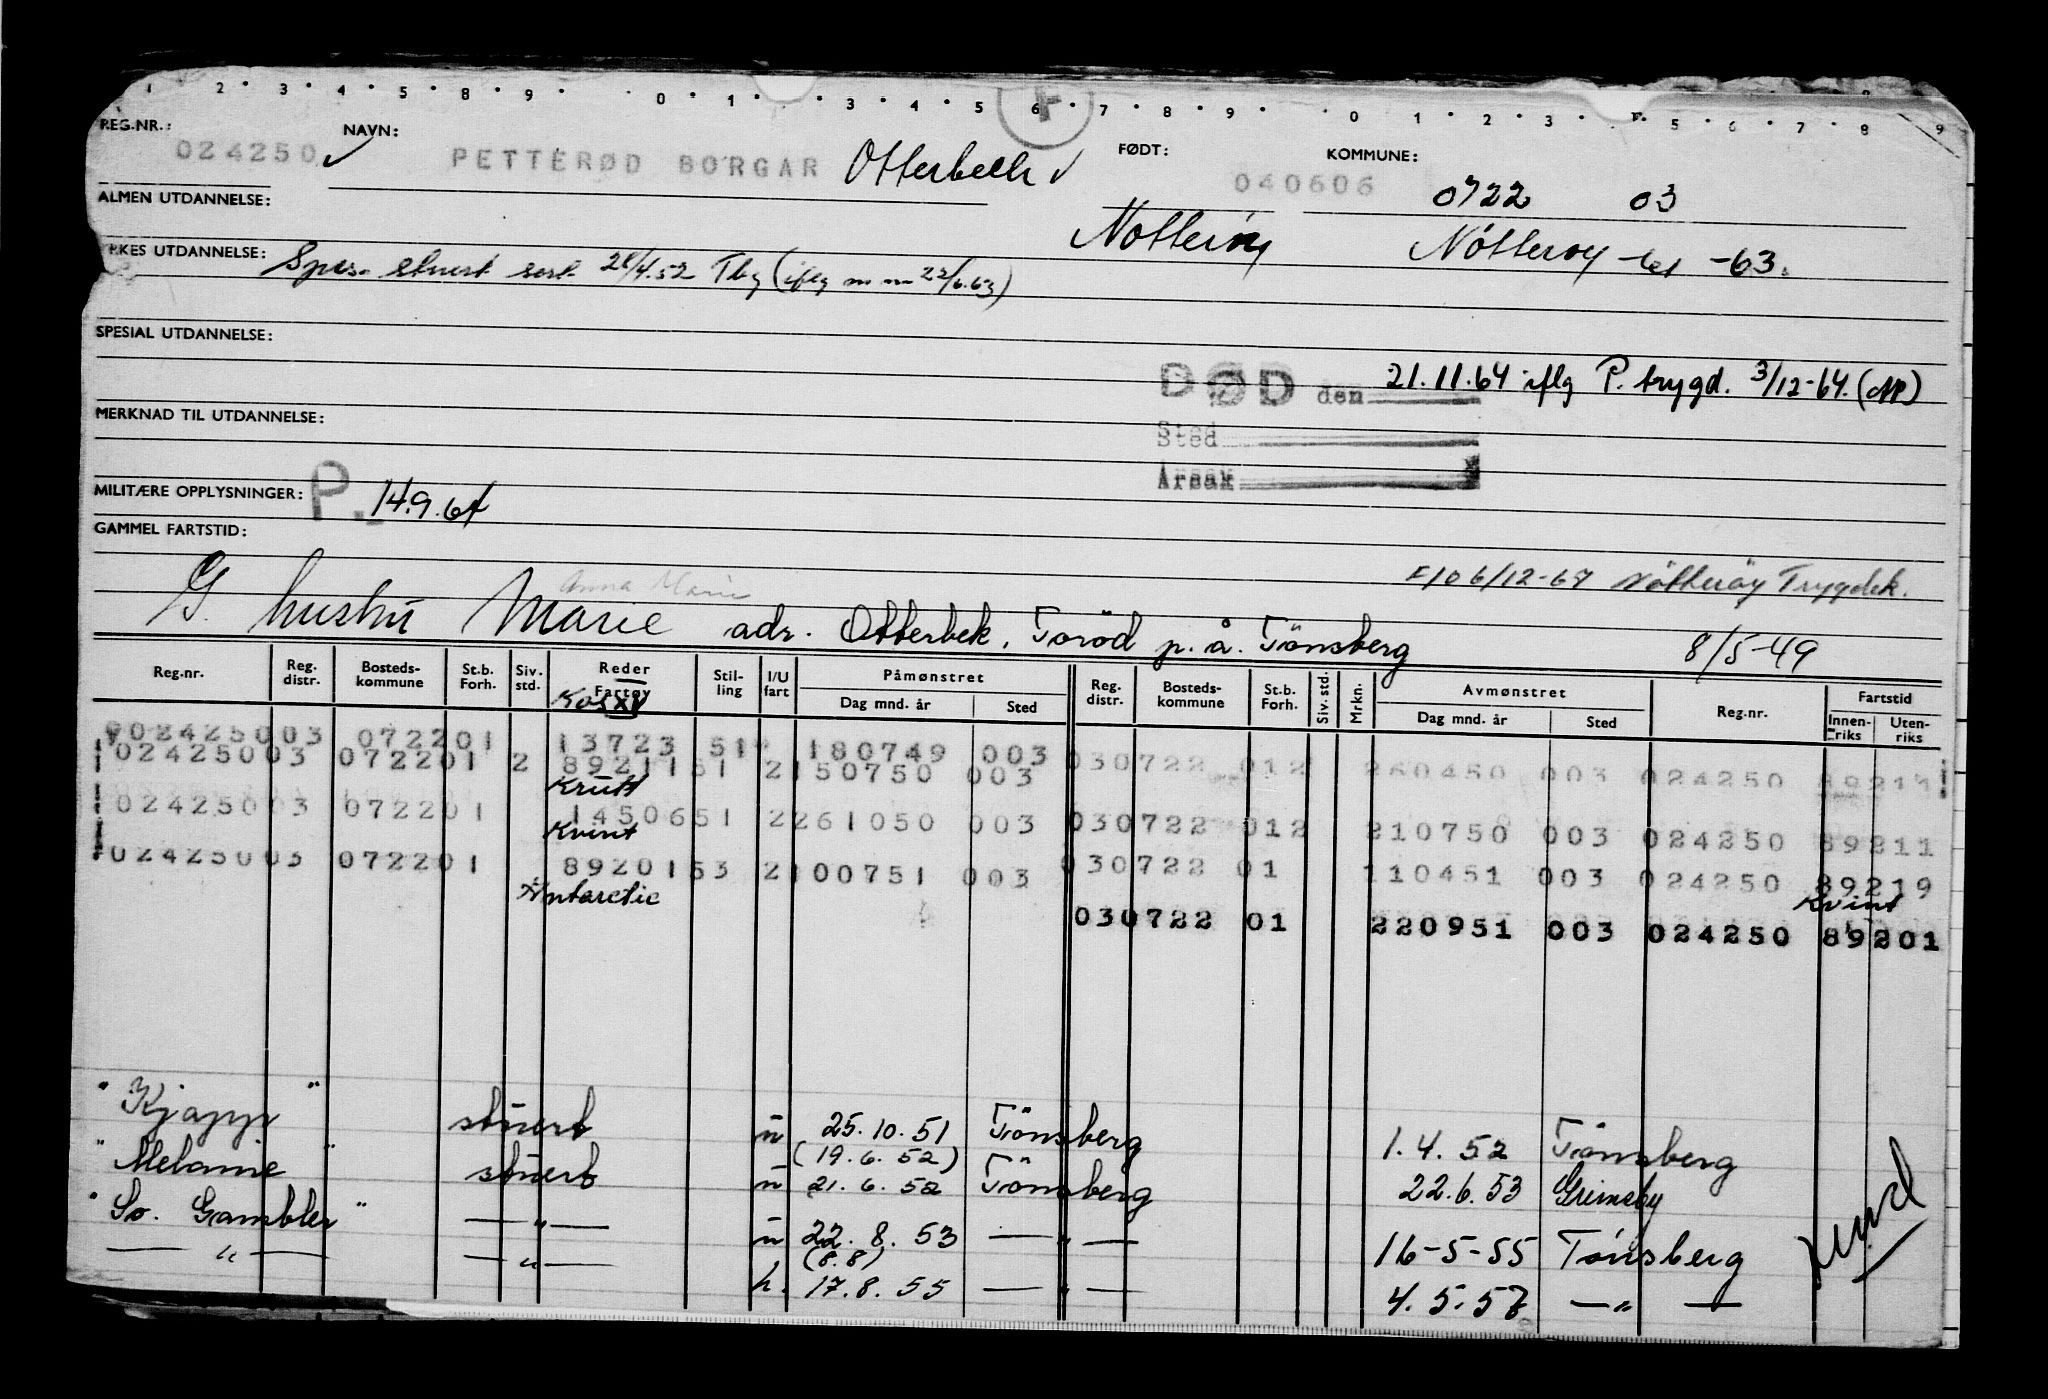 1 2 3 4 5 8 9 0 1 3 4 5 6 7 8 9 0 1 2 3 5 6 7 8 9
F
REG.NR.: NAVN: FØDT: KOMMUNE:
024250 ✓ PETTERØD BORGAR Otterbech ✓ 040606 0722 03
ALMEN UTDANNELSE:
Nötteröy Nötteröy -63.
RKES UTDANNELSE: Spes. stuert sert. 21/4.52 Tbg (iflg m m 22/6.63)
SPESIAL UTDANNELSE:
DØD den 21.11.64 iflg P. trygd. 3/12-64.
MERKNAD TIL UTDANNELSE:
Sted
Årsak
MILITÆRE OPPLYSNINGER: P. 14.9.64
GAMMEL FARTSTID:
Anna Marie
6/12-67 Nötteröy Trygdek.
G. hustru Marie adr. Otterbek, Toröd p.å. Tönsberg 8/5-49
Reg.nr. Reg. distr. Bosteds- kommune St.b. Forh. Siv. std. Reder Fartøy Stil- ling I/U fart Påmønstret Reg. distr. Bosteds- kommune St.b. Forh. Siv. std. Mrkn. Avmønstret Reg.nr. Fartstid
Dag mnd. år Sted Dag mnd. år Sted Innen- riks Uten- riks
Kos XV
02425003 072201 13723 51 180749 003
02425003 072201 2 8921151 2150750 003 030722 012 260450 003 024250 89211
Krutt
02425003 072201 1450651 2261050 003 030722 012 210750 003 024250 89211
Kvint
02425003 072201 8920153 2100751 003 030722 01 110451 003 024250 89219
Antarctic Kvint
030722 01 220951 003 024250 89201
" Kjapp " stuert u 25.10.51 Tönsberg 1.4.52 Tönsberg
(19.6.52)
" Melanie " stuert u 21.6.52 Tönsberg 22.6.53 Grimsby
" So. Gambler " — " — u 22.8.53 — " — 16-5-55 Tönsberg
(8.8)
— " — — " — h. 17.8.55 — " — 4.5.57 — " —